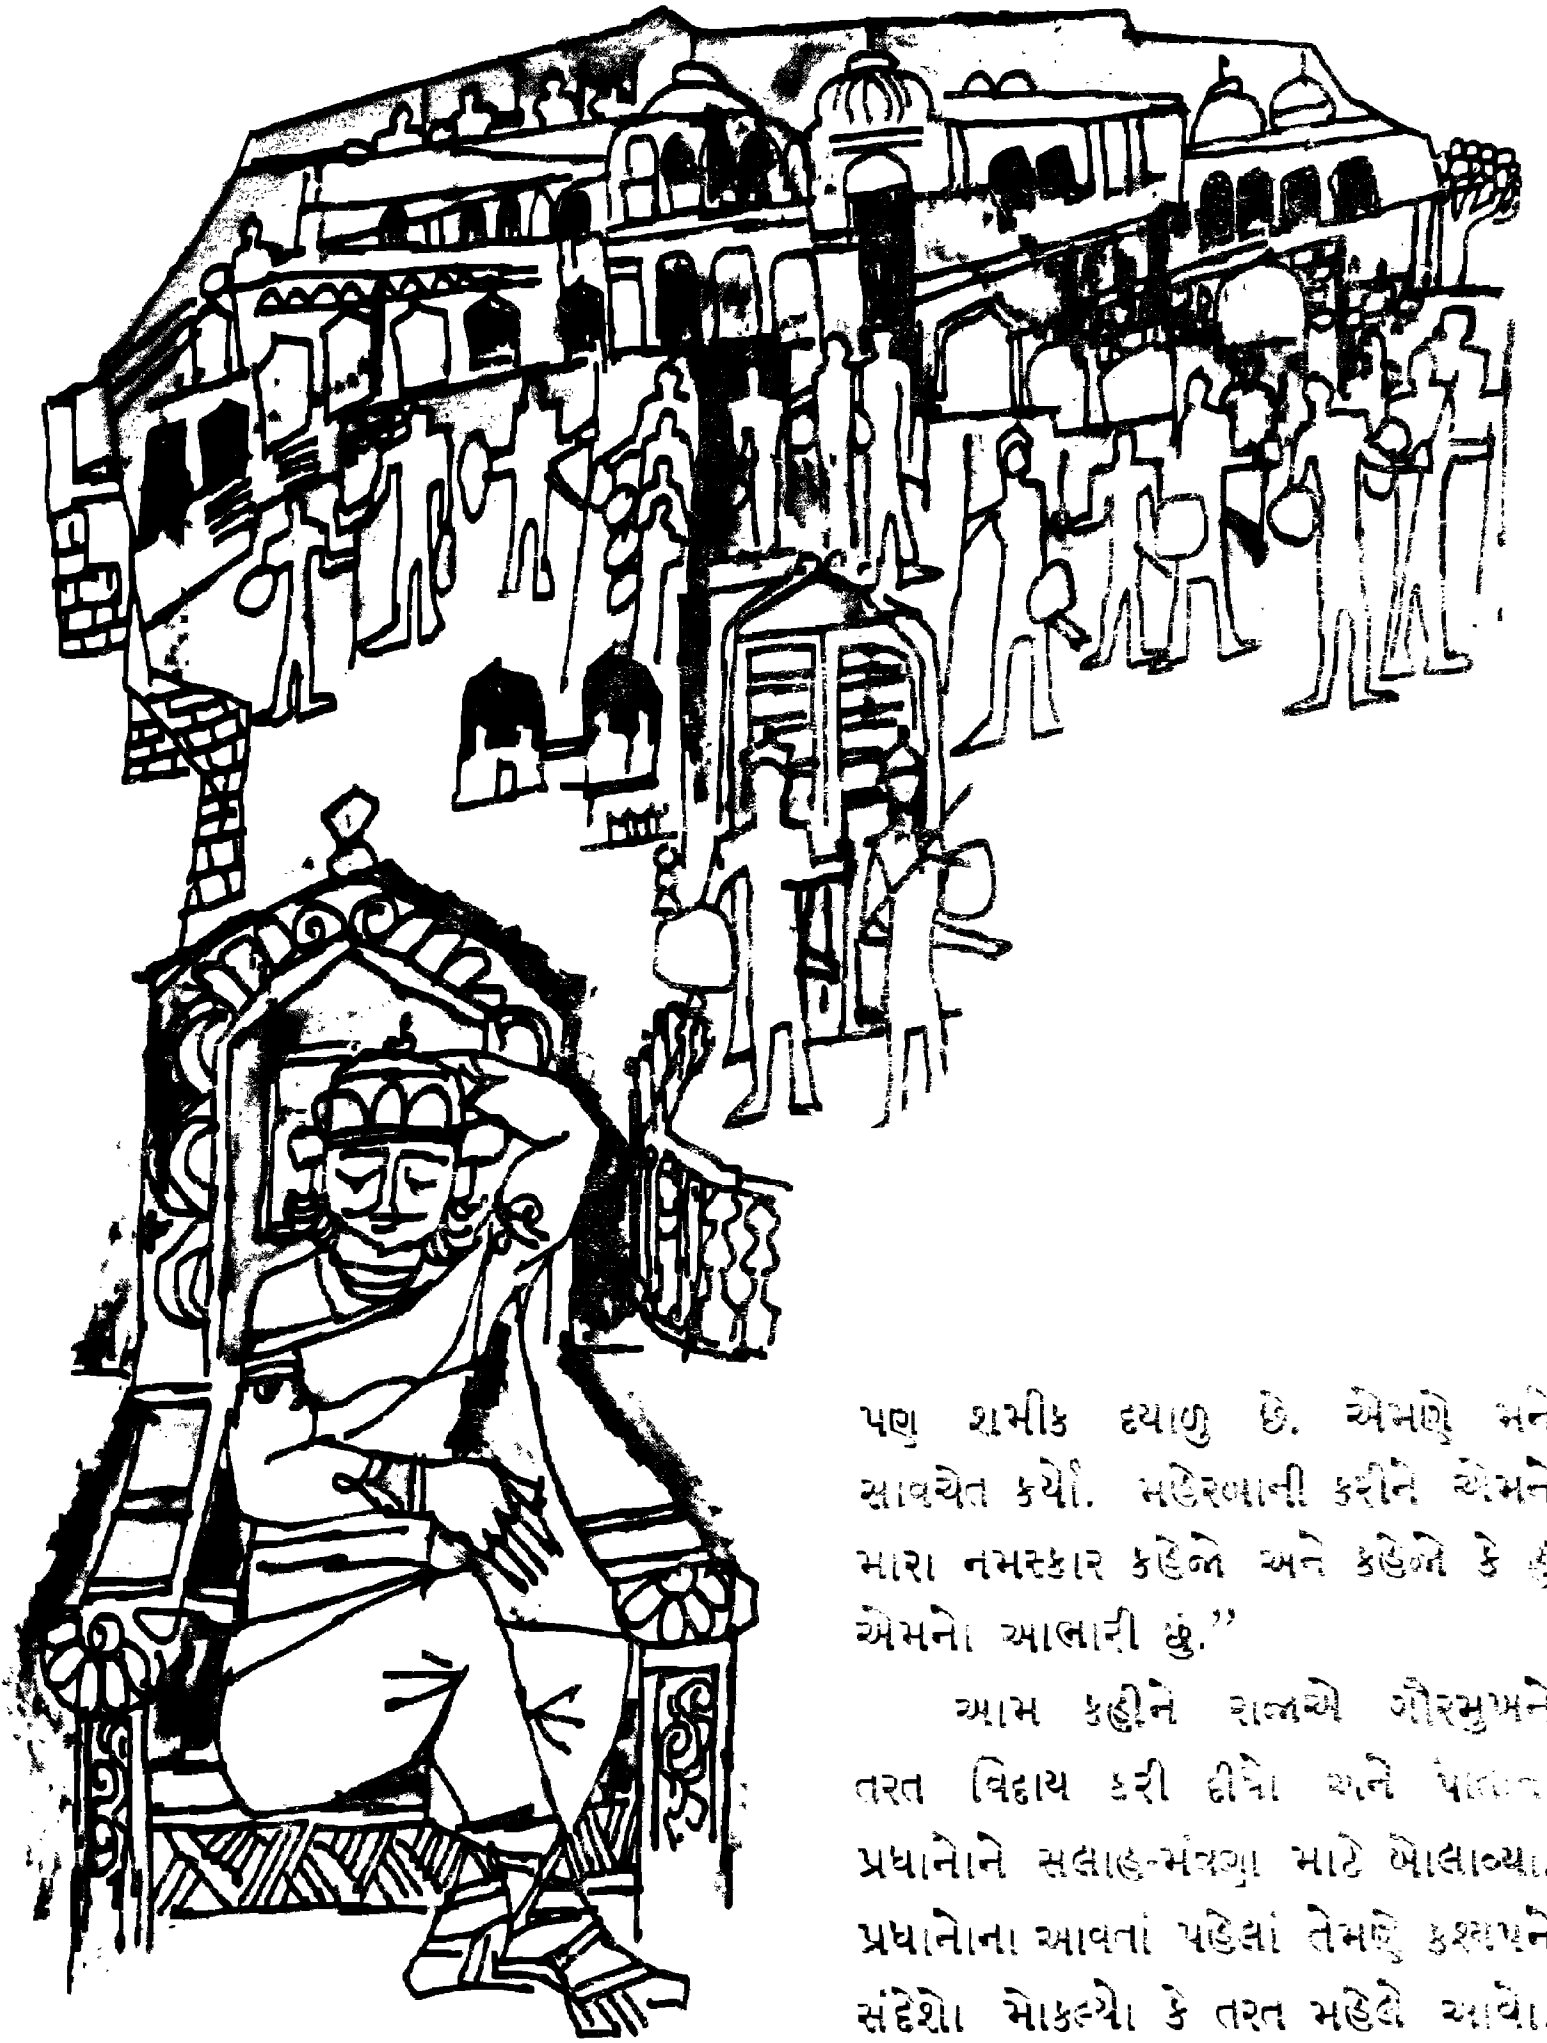 પણ શમીક દયાળુ છે. એમણે મને
સાવચેત કર્યો. મહેરબાની કરીને એમને
મારા નમસ્કાર કહેજો અને કહેજો કે હું
એમનો આભારી છું.”
આમ કહીને રાજાએ ગૌરમુખને
તરત વિદાય કરી દીધો અને
પ્રધાનોને સલાહ-મંત્રણા માટે બોલાવ્યા.
પ્રધાનોના આવતાં પહેલાં તેમણે કશ્યપને
સંદેશો મોકલ્યો કે તરત મહેલે આવો.